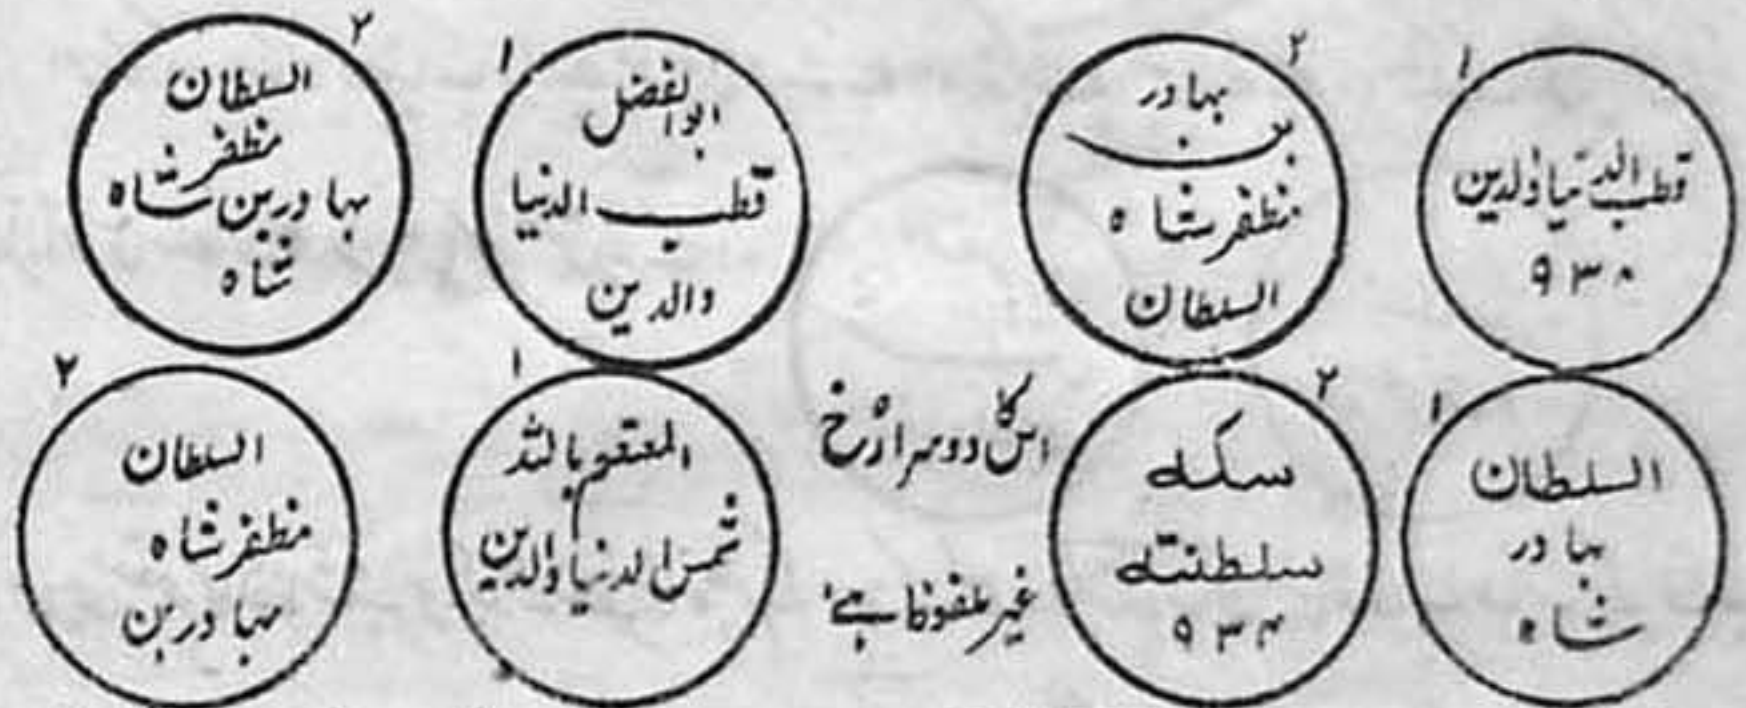 ۱
قطب الدنیا والدین
۹۳۸
۲
بہادر
بن
مظفر شاہ
السلطان
۱
ابوالفضل
قطب الدنیا
والدین
۲
السلطان
مظفر
بہادر بن شاہ
شاہ
۱
السلطان
بہادر
شاہ
۲
سکہ
سلطنتہ
۹۳۴
اس کا دوسرا رُخ
غیر ملفوظ ہے
۱
المعتصم باللہ
شمس الدنیا والدین
۲
السلطان
مظفر شاہ
بہادر بن